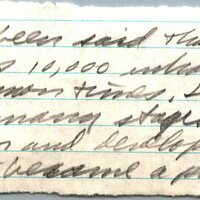 been said tha
10,000 inha
many stages
and develop
became a p